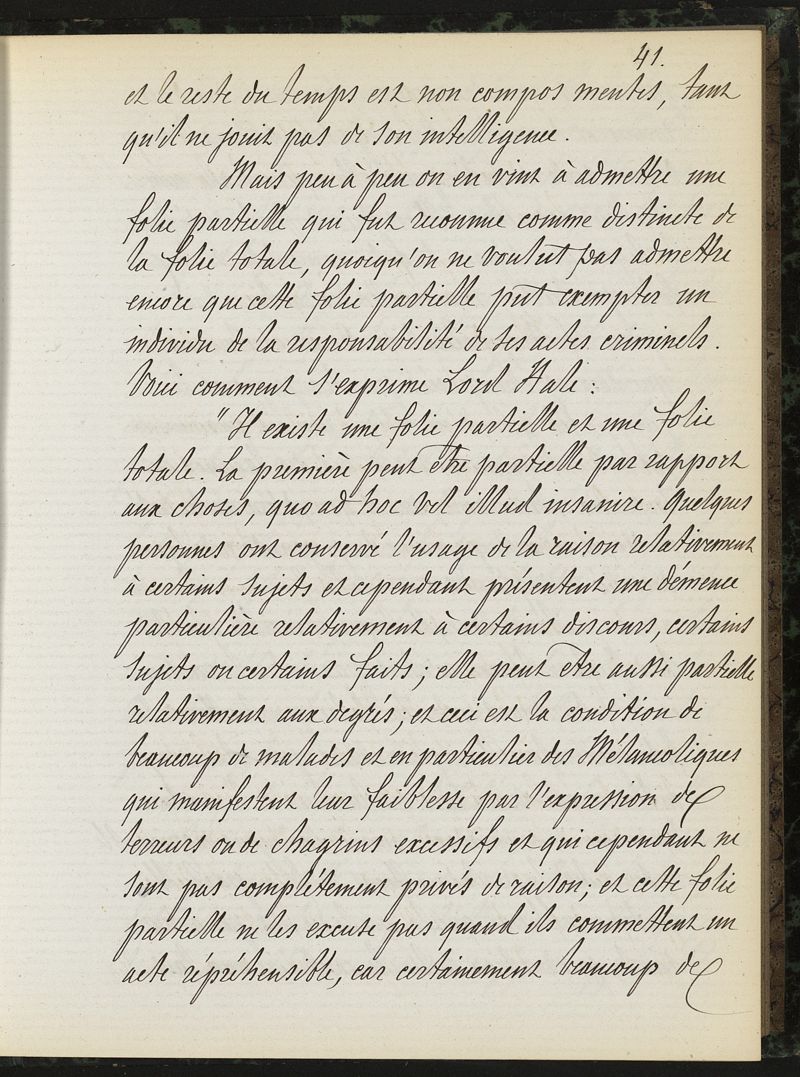 41.
et le reste du temps est non compos mentis, tant
qu'il ne jouit pas de son intelligence.
Mais peu à peu on en vint à admettre une
folie partielle qui fut reconnue comme distincte de
la folie totale, quoiqu'on ne voulut pas admettre
encore que cette folie partielle pût exempter un
individu de la responsabilité de ses actes criminels.
Voici comment s'exprime Lord Hale :
"Il existe une folie partielle et une folie
totale. La première peut être partielle par rapport
aux choses, quo ad hoc vel illud insanire. Quelques
personnes ont conservé l'usage de la raison relativement
à certains sujets et cependant présentent une démence
particulière relativement à certains discours, certains
sujets ou certains faits ; elle peut être aussi partielle
relativement aux degrés ; et ceci est la condition de
beaucoup de malades et en particulier des Mélancoliques
qui manifestent leur faiblesse par l'expression de
terreurs ou de chagrins excessifs et qui cependant ne
sont pas complétement privés de raison ; et cette folie
partielle ne les excuse pas quand ils commettent un
acte répréhensible, car certainement beaucoup de